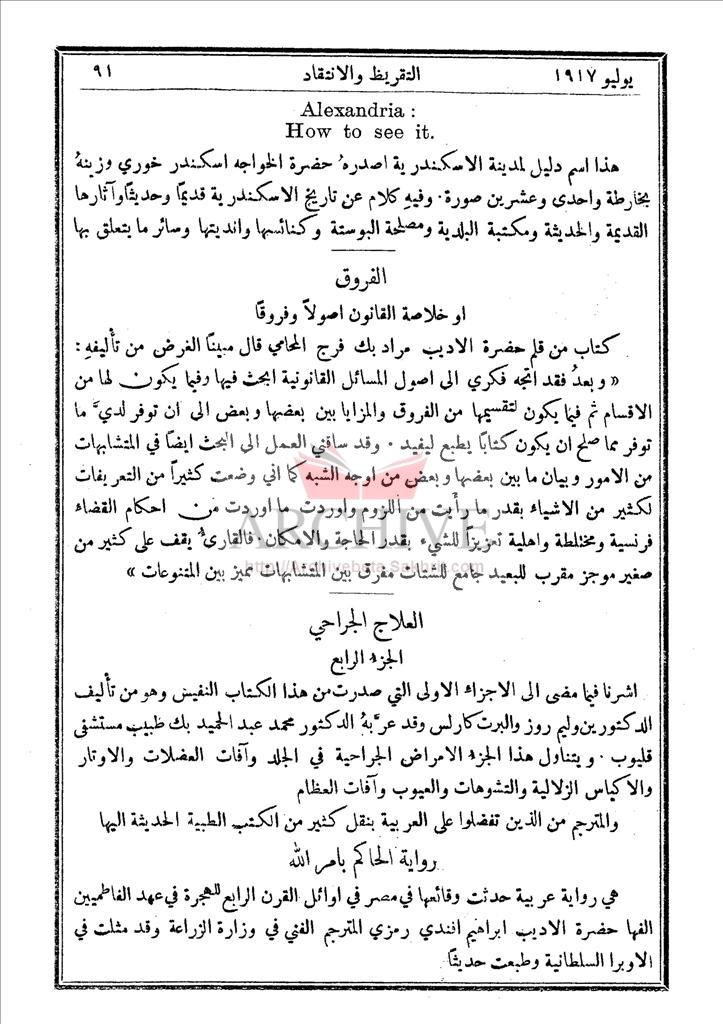 يوليو ١٩١٧ التقريظ والانتقاد ٩١
Alexandria :
How to see it.
هذا اسم دليل لمدينة الاسكندرية اصدره حضرة الخواجه اسكندر خوري وزينهُ
بخارطة واحدى وعشرين صورة . وفيهِ كلام عن تاريخ الاسكندرية قديمًا وحديثًا وآثارها
القديمة والحديثة ومكتبة البلدية ومصلحة البوستة وكنائسها وانديتها وسائر ما يتعلق بها
الفروق
او خلاصة القانون اصولاً وفروقًا
كتاب من قلم حضرة الاديب مراد بك فرج المحامي قال مبينًا الغرض من تأليفهِ :
« وبعدُ فقد اتجه فكري الى اصول المسائل القانونية ابحث فيها وفيما يكون لها من
الاقسام ثم فيما يكون لتقسيمها من الفروق والمزايا بين بعضها وبعض الى ان توفر لديَّ ما
توفر مما صلح ان يكون كتابًا يطبع ليفيد . وقد ساقني العمل الى البحث ايضًا في المتشابهات
من الامور وبيان ما بين بعضها وبعض من اوجه الشبه كما اني وضعت كثيرًا من التعريفات
لكثير من الاشياء بقدر ما رأيت من اللزوم واوردت ما اوردت من احكام القضاء
فرنسية ومختلطة واهلية تعزيزًا للشيء بقدر الحاجة والامكان . فالقارئ يقف على كثير من
صغير موجز مقرب للبعيد جامع للشتات مفرق بين المتشابهات مميز بين المتنوعات »
العلاج الجراحي
الجزء الرابع
اشرنا فيما مضى الى الاجزاء الاولى التي صدرت من هذا الكتاب النفيس وهو من تأليف
الدكتورين وليم روز والبرت كارلس وقد عرَّبهُ الدكتور محمد عبد الحميد بك طبيب مستشفى
قليوب . ويتناول هذا الجزء الامراض الجراحية في الجلد وآفات العضلات والاوتار
والاكياس الزلالية والتشوهات والعيوب وآفات العظام
والمترجم من الذين تفضلوا على العربية بنقل كثير من الكتب الطبية الحديثة اليها
رواية الحاكم بامر الله
هي رواية عربية حدثت وقائعها في مصر في اوائل القرن الرابع للهجرة في عهد الفاطميين
الفها حضرة الاديب ابراهيم افندي رمزي المترجم الفني في وزارة الزراعة وقد مثلت في
الاوبرا السلطانية وطبعت حديثًا
ARCHIVE
http://Archivebeta.Sakhrit.com